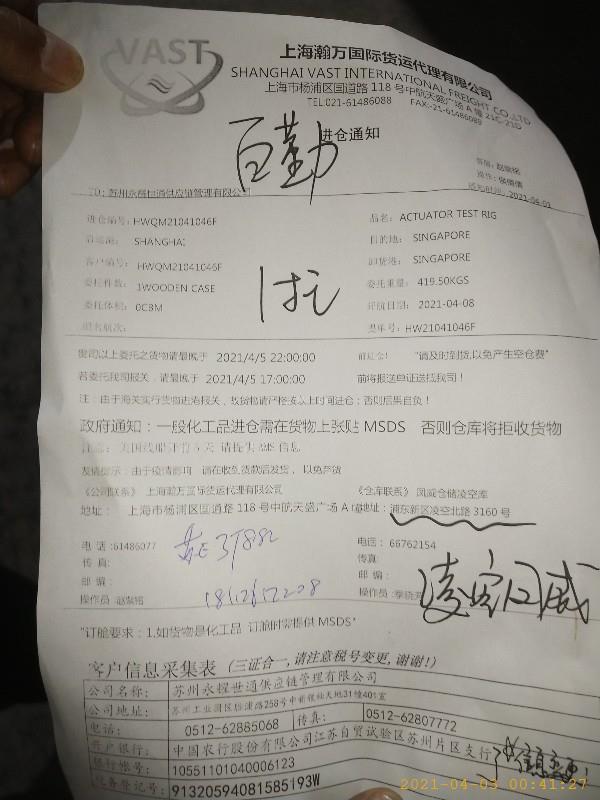 VAST
上海瀚万国际货运代理有限公司
SHANGHAI VAST INTERNATIONAL FREIGHT CO.,LTD
上海市杨浦区国道路 118 号中航天盛广场 A 幢 21C-21D
TEL:021-61486088 FAX:-21-61486089
百勤 进仓通知
2021-04-01
TO: 苏州永耀世通供应链管理有限公司
进仓编号: HWQM21041046F 品名: ACTUATOR TEST RIG
SHANGHAI 目的地: SINGAPORE
客户编号: HWQM21041046F 卸货港: SINGAPORE
委托件数: 1WOODEN CASE 委托重量: 419.50KGS
委托体积: 0CBM 开航日期: 2021-04-08
船名航次: 提单号: HW21041046F
1托
贵司以上委托之货物请最晚于 2021/4/5 22:00:00 前进仓! "请及时到货,以免产生空仓费"
若委托我司报关, 请最晚于 2021/4/5 17:00:00 前将报送单证送找我司!
注: 由于海关实行货物进港报关, 收货物请严格按以上时间进仓; 否则后果自负!
政府通知: 一般化工品进仓需在货物上张贴 MSDS 否则仓库将拒收货物
友情提示: 由于疫情影响 请在收到货款后发货, 以免产货
《公司联系》 上海瀚万国际货运代理有限公司 《仓库联系》 凤威仓储凌空库
地址: 上海市杨浦区国道路 118 号中航天盛广场 A 幢 地址: 浦东新区凌空北路 3160 号
电 话: 61486077 电话: 66762154
传 真: 传真:
邮 编: 邮 编:
操作员: 赵紫铭 操作员:
"订舱要求: 1.如货物是化工品 订舱时需提供 MSDS"
客户信息采集表 (三证合一, 请注意税号变更, 谢谢!)
公司名称: 苏州永耀世通供应链管理有限公司
公司地址:
电话: 0512-62885068 传真: 0512-62807772
开户银行: 中国农行股份有限公司江苏自贸试验区苏州片区支行
银行帐号: 10551101040006123
税务登记号: 91320594081585193W
2021-04-03 00:41:27